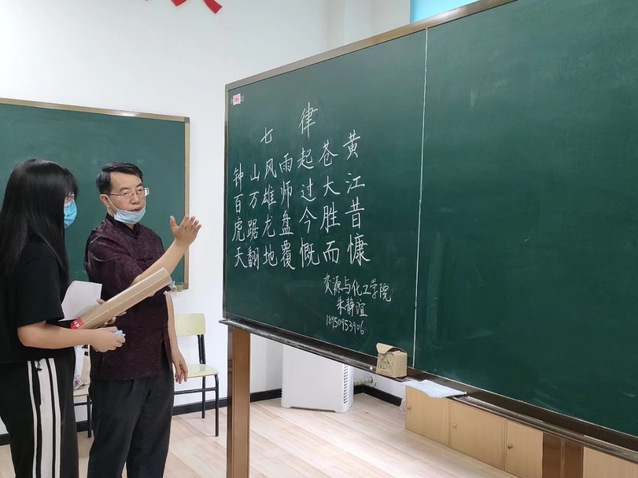 七 律
钟山风雨起苍黄
百万雄师过大江
虎踞龙盘今胜昔
天翻地覆慨而慷
资源与化工学院
朱静谊